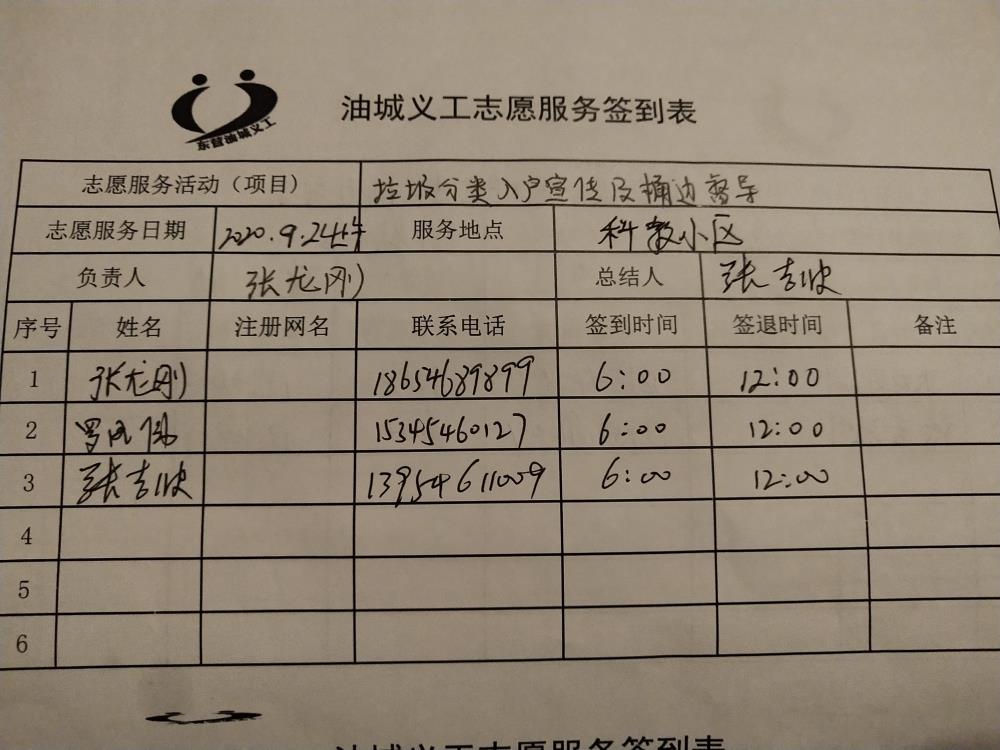 东营油城义工
油城义工志愿服务签到表
志愿服务活动（项目） 垃圾分类入户宣传及桶边督导
志愿服务日期 2020.9.24上午 服务地点 科教小区
负责人 张龙刚 总结人 张吉波
序号 姓名 注册网名 联系电话 签到时间 签退时间 备注
1 张龙刚 18654689899 6:00 12:00
2 罗 15345460127 6:00 12:00
3 张吉波 13954611009 6:00 12:00
4
5
6
油城义工志愿服务签到表